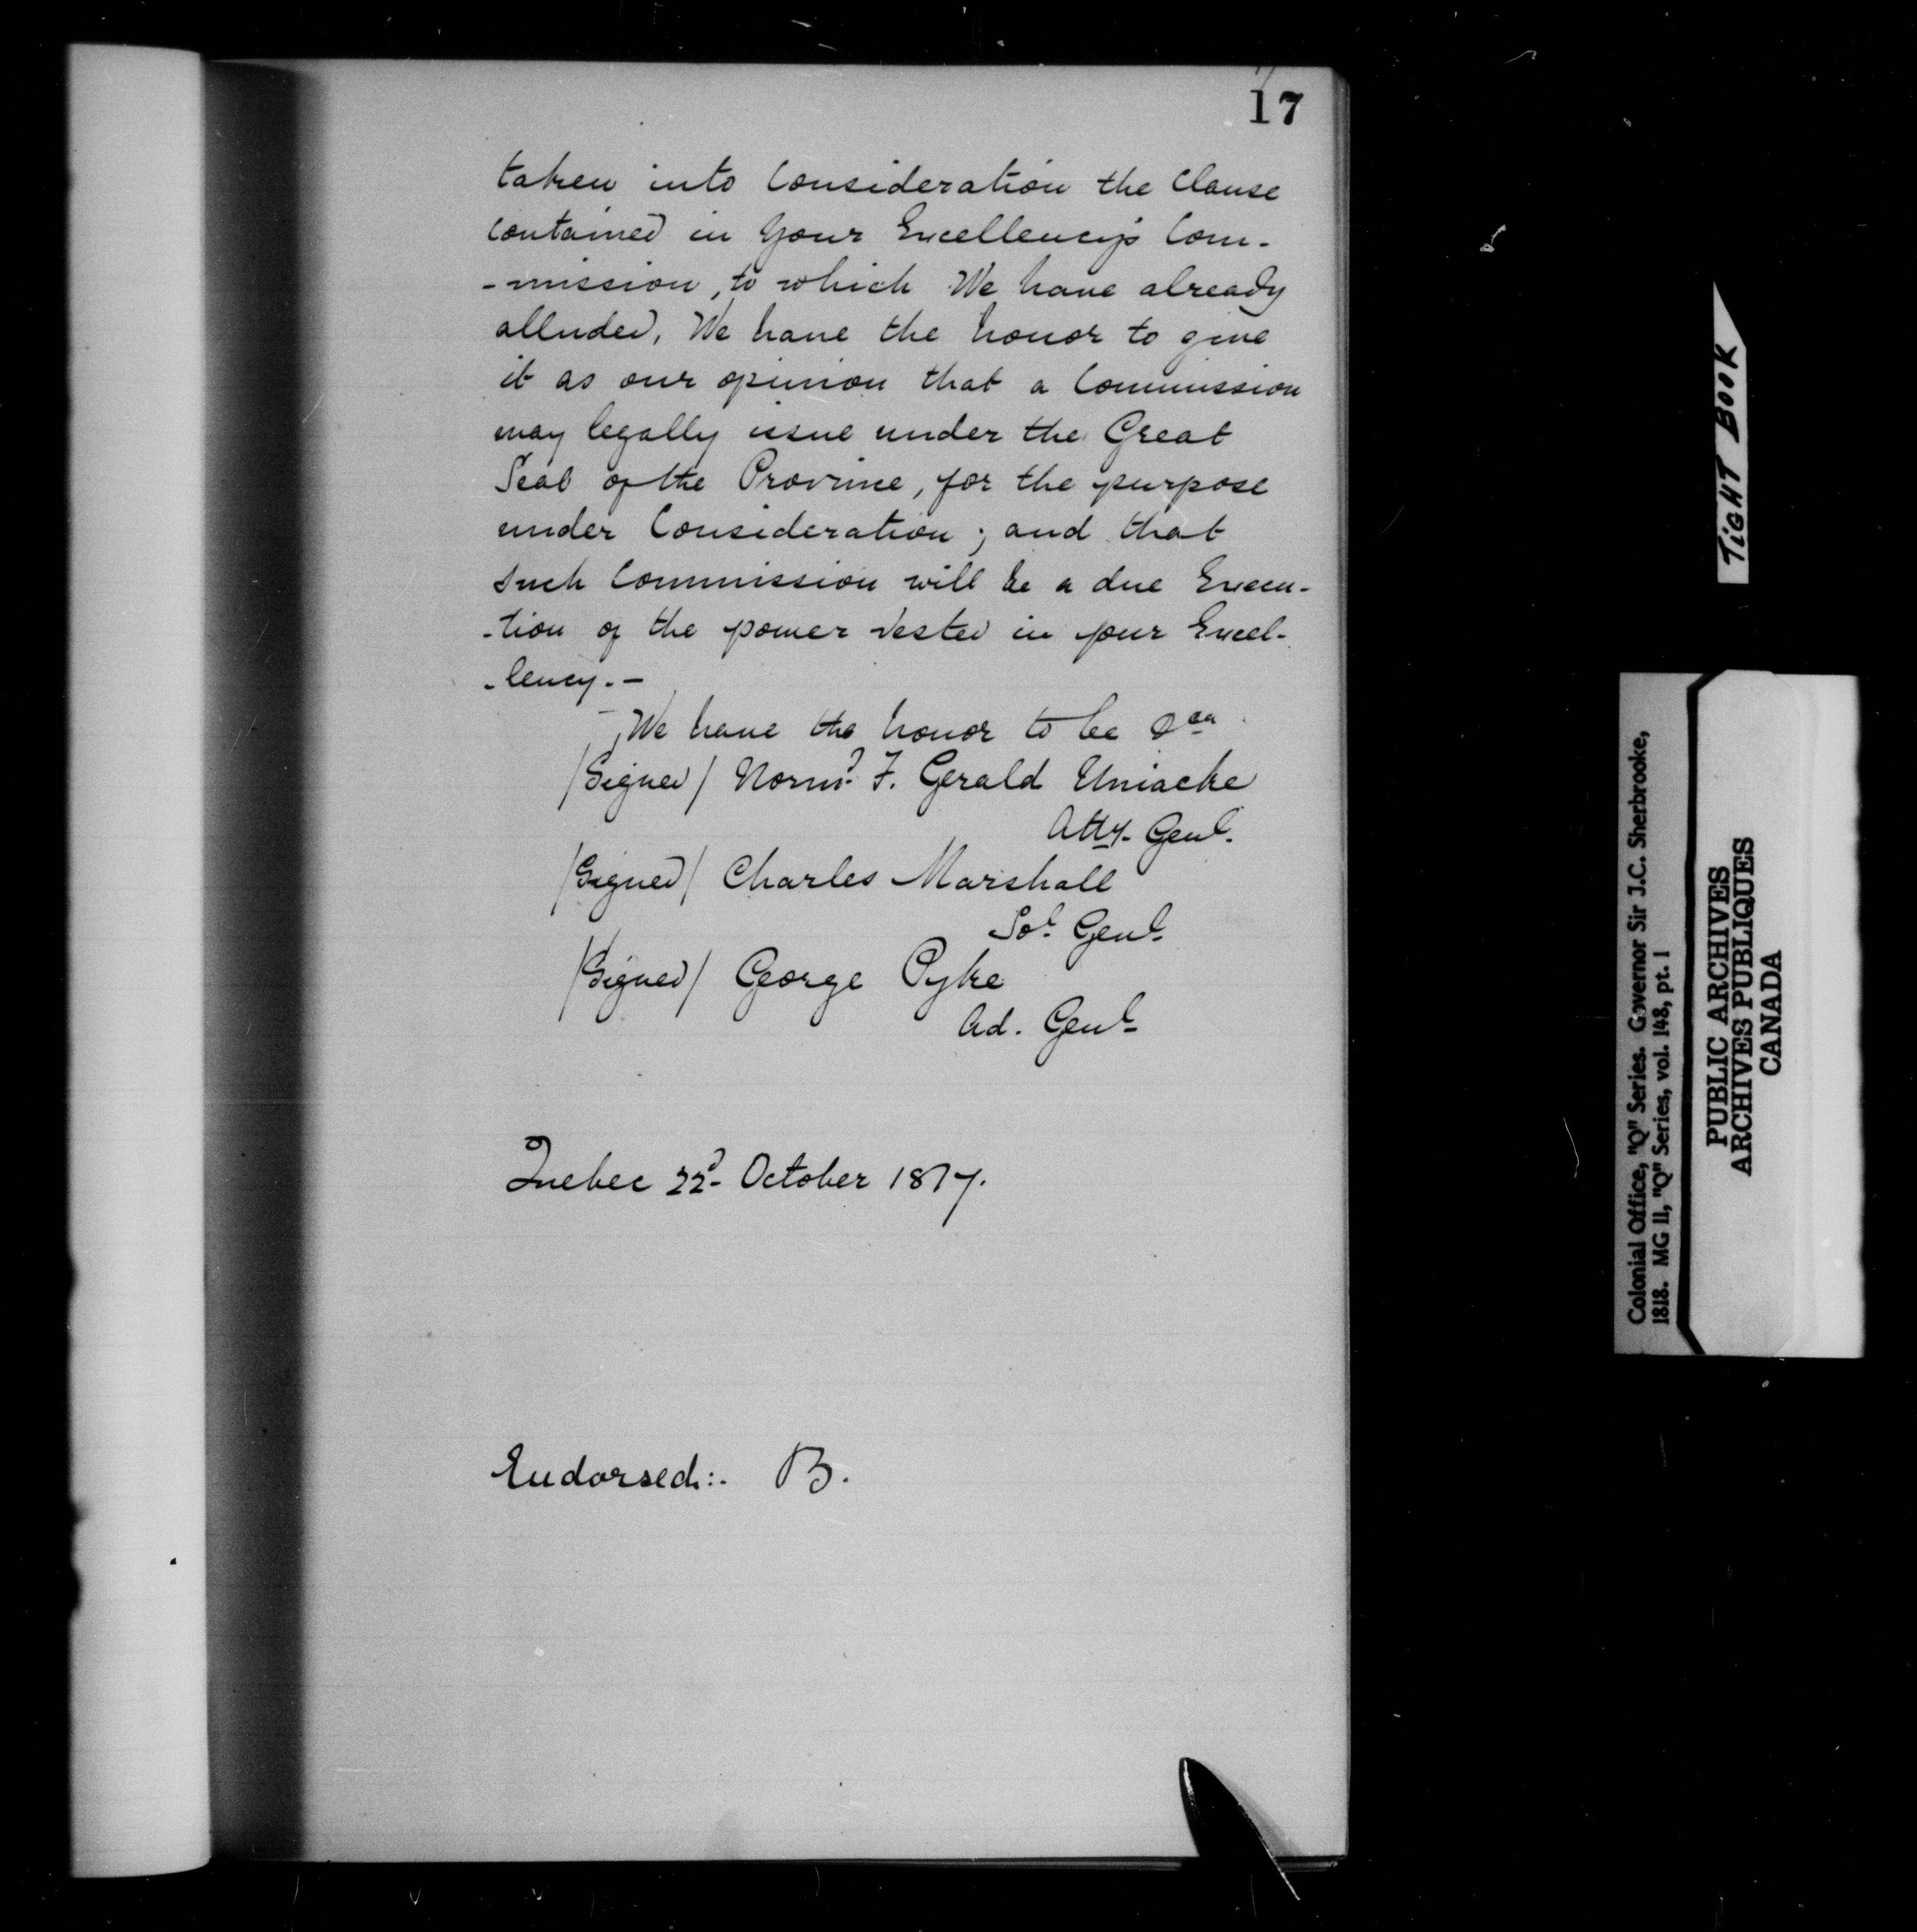 17
taken into Consideration the Clause
contained in Your Excellency's Com-
-mission, to which We have already
alluded, We have the honor to give
it as our opinion that a Commission
may legally issue under the Great
Seal of the Province, for the purpose
under Consideration; and that
such Commission will be a due Execu-
-tion of the power vested in your Excel-
-lency.-
We have the honor to be &ca
/Signed/ Normd. F. Gerald Uniacke
Atty. Genl.
/Signed/ Charles Marshall
Sol. Genl.
/Signed/ George Pyke
Ad. Genl.
Quebec 22d October 1817.
Endorsed:. B.
TIGHT BOOK
Colonial Office, "Q" Series. Governor Sir J.C. Sherbrooke,
1818. MG 11, "Q" Series, vol. 148, pt. 1
PUBLIC ARCHIVES
ARCHIVES PUBLIQUES
CANADA